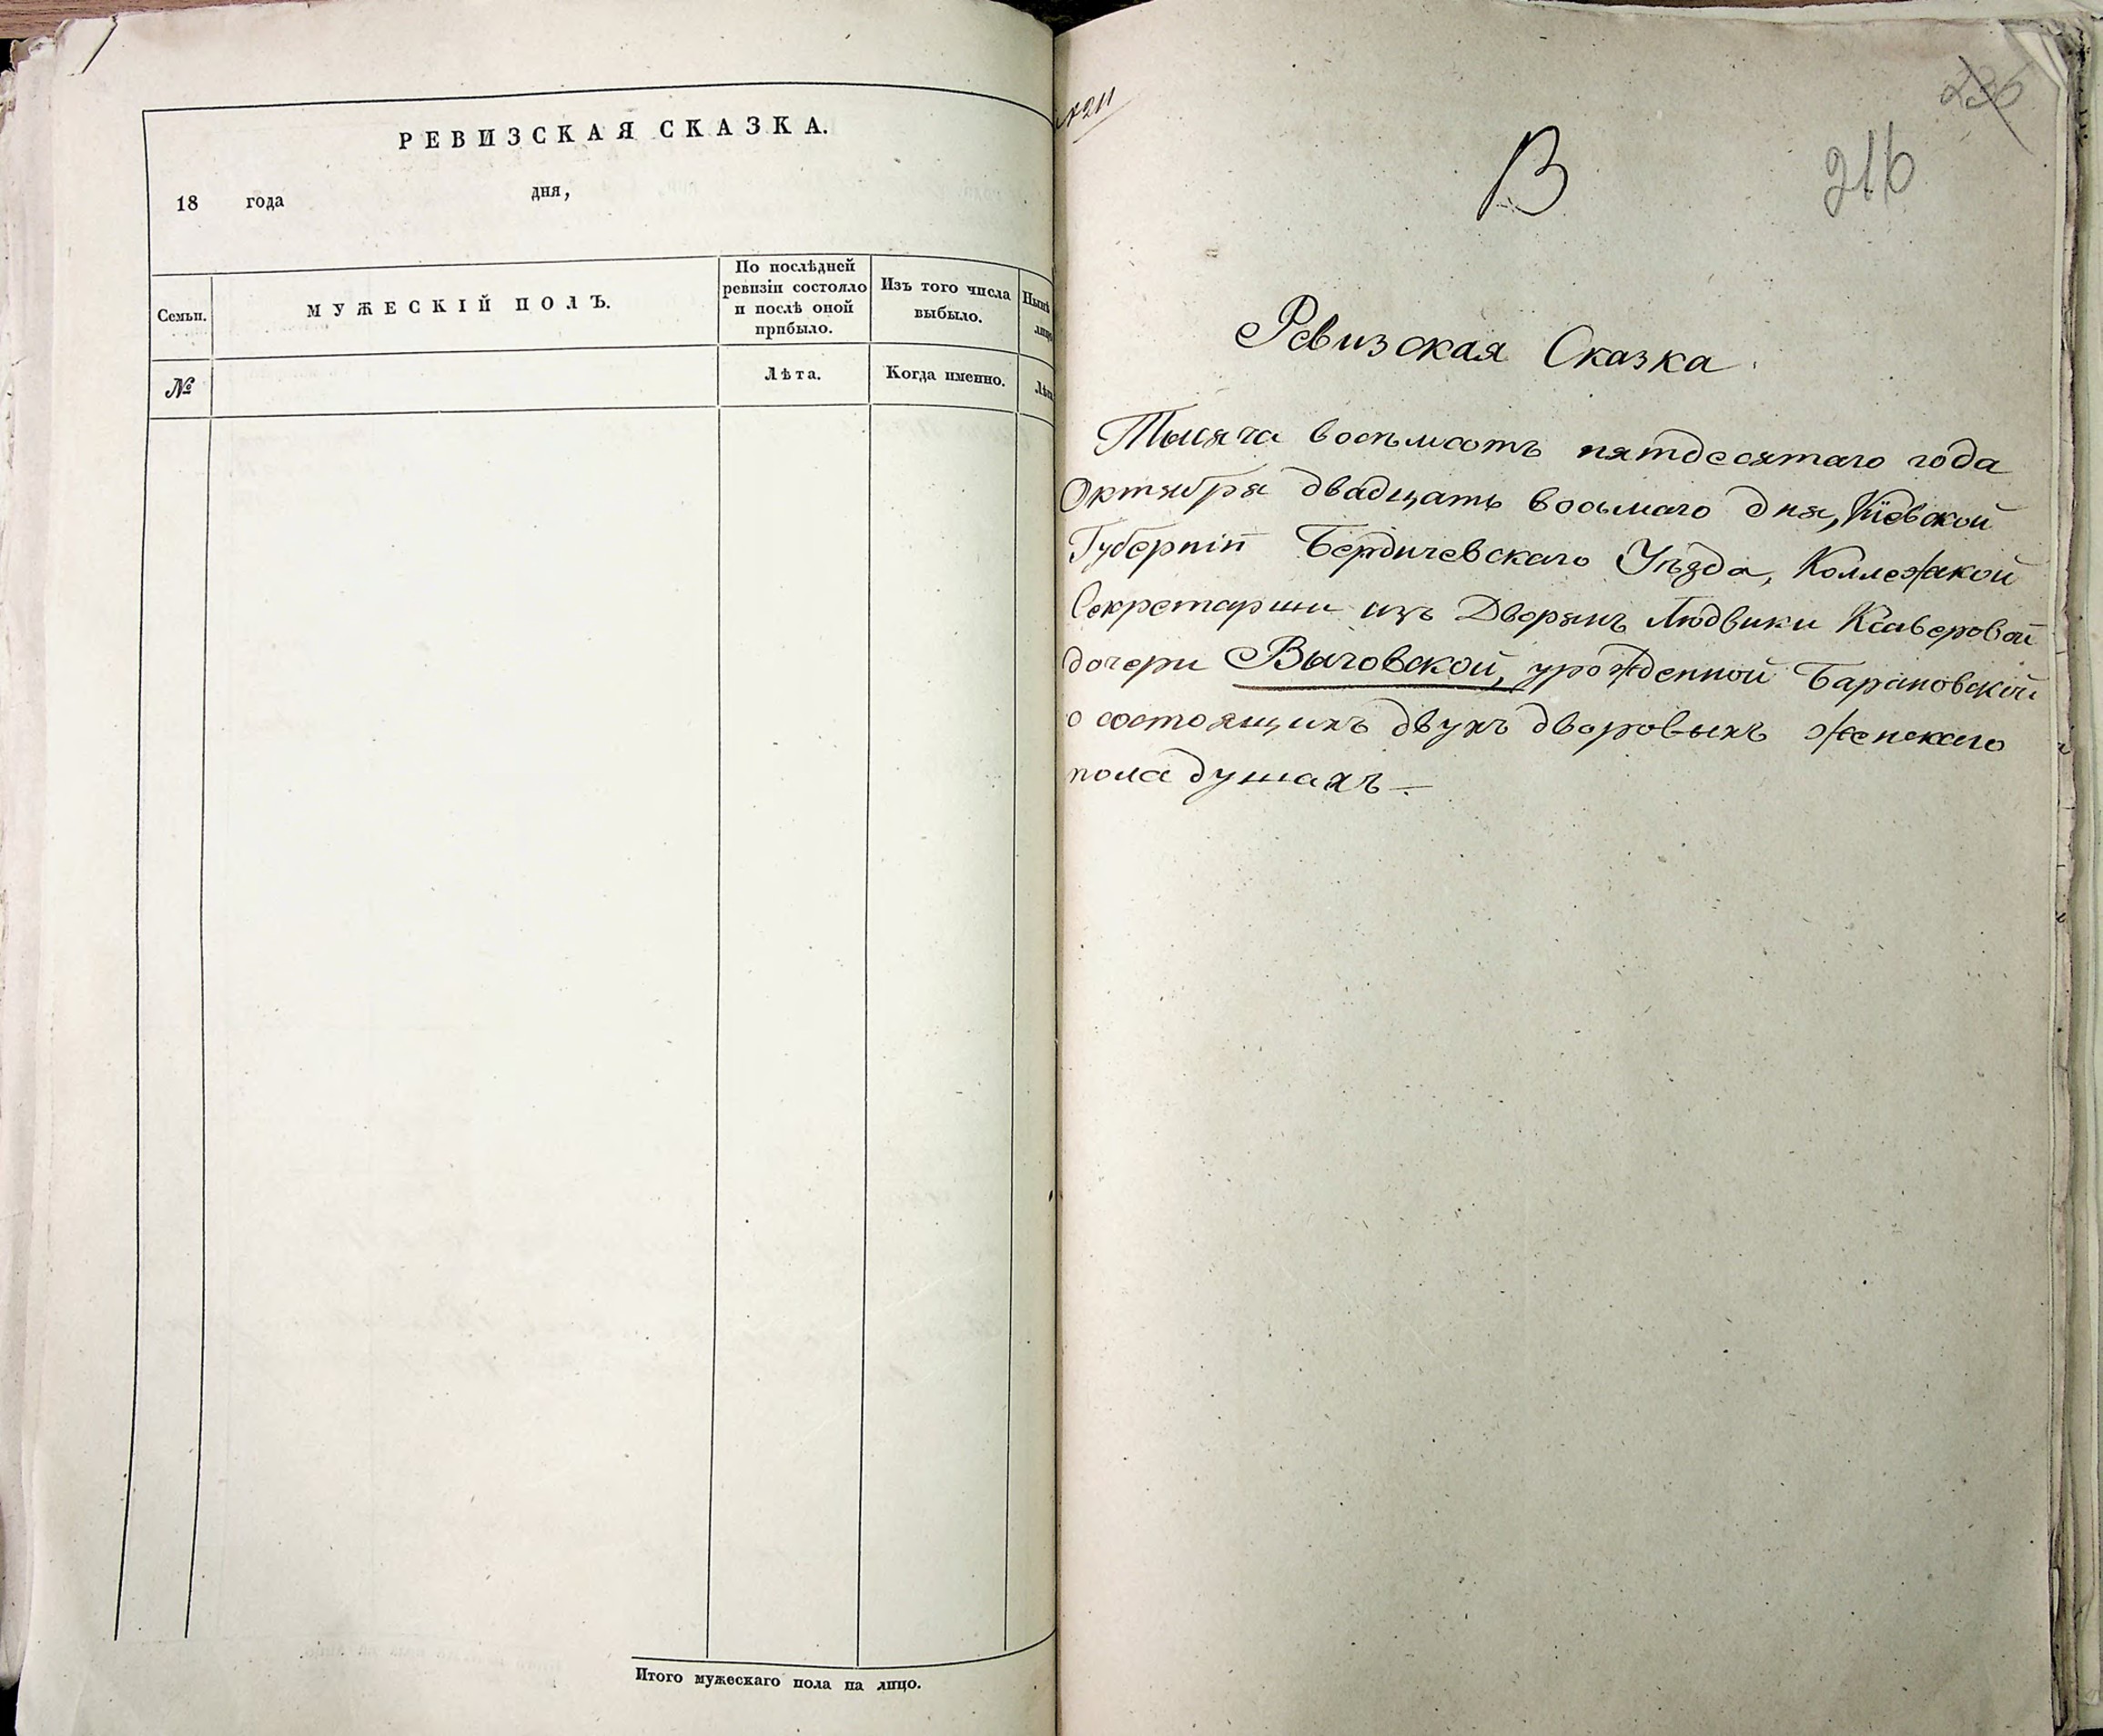 РЕВИЗСКАЯ СКАЗКА.
18 года дня,
Семьи.
МУЖЕСКІЙ ПОЛЪ.
По послѣдней
ревизіи состояло
и послѣ оной
прибыло.
Изъ того числа
выбыло.
№
Лѣта.
Когда именно.
Итого мужескаго пола на лицо.
№ 211
В
216
236
Ревизская Сказка
Тысяча восемьсотъ пятдесятаго года
Октября двадцать восьмаго дня, Кіевской
Губерніи Бердичевскаго Уѣзда, Коллежской
Секретарши изъ Дворянъ Людвики Ксаверовой
дочери Выговской, урожденной Барановской
о состоящихъ двухъ дворовыхъ женскаго
пола душахъ —